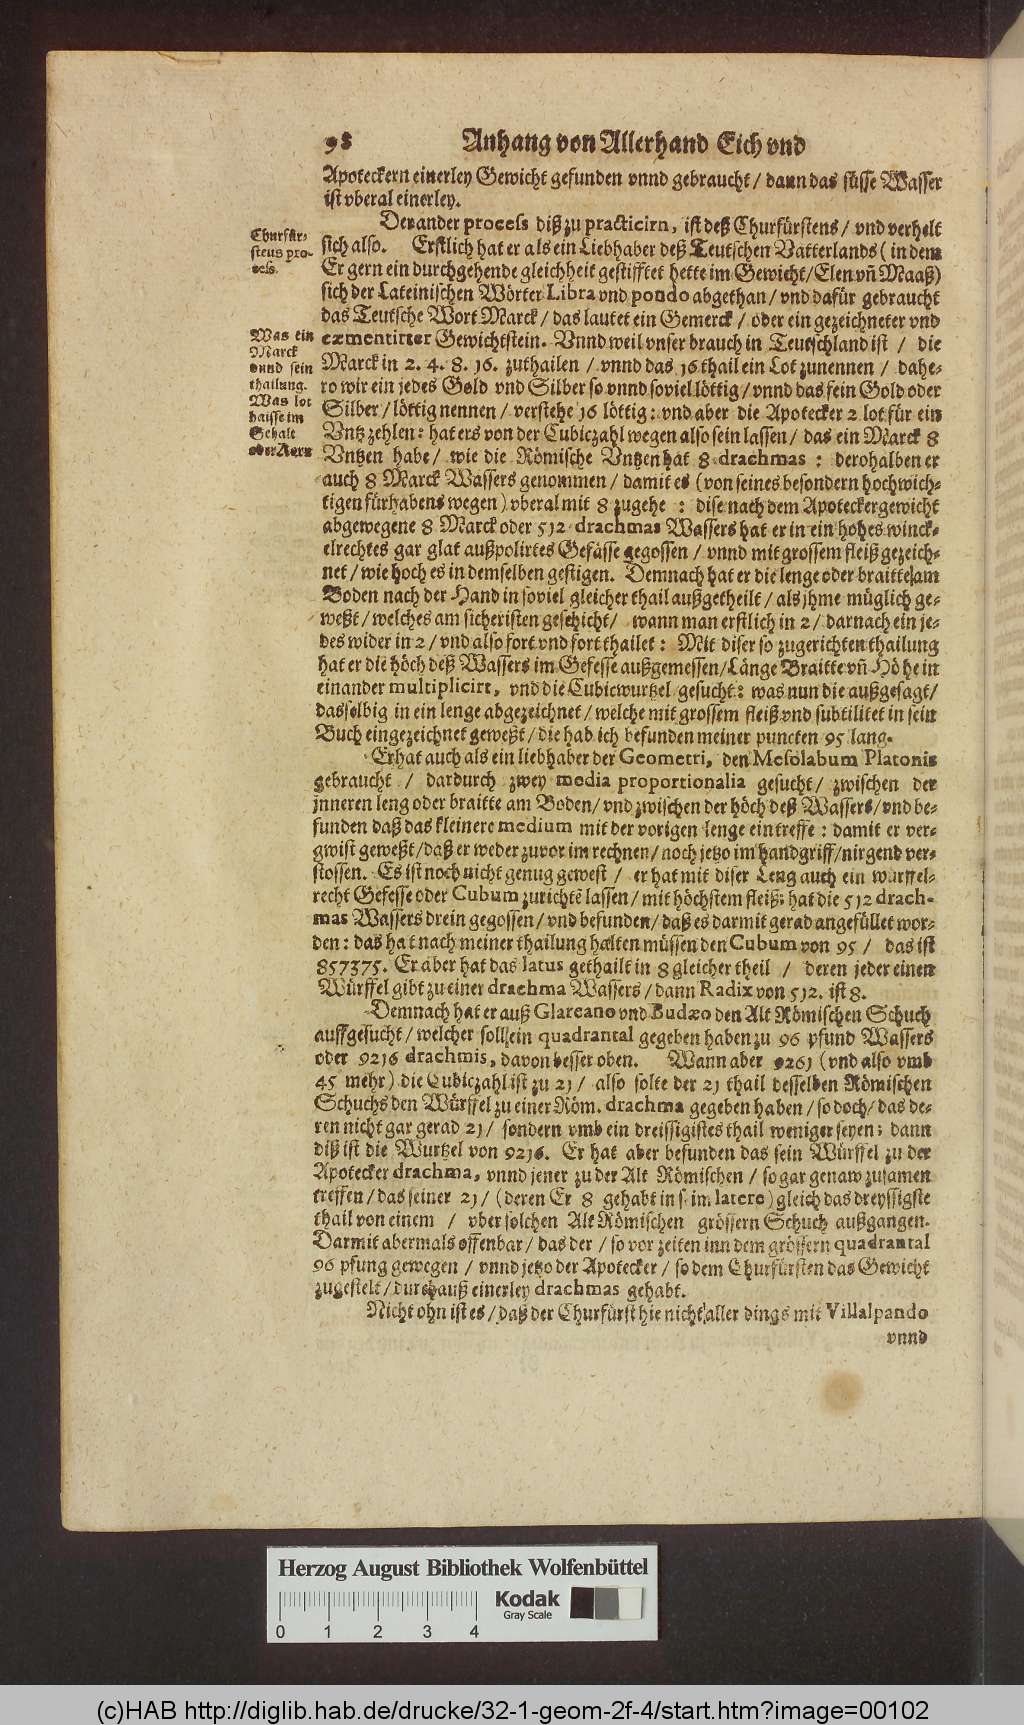 98 Anhang von Allerhand Eich vnd
Apoteckern einerley Gewicht gefunden vnnd gebraucht / dann das süsse Wasser
ist vberal einerley.
Der ander process diß zu practicirn, ist deß Churfürstens / vnd verhelt
Churfür-
stens pro-
cess.
sich also. Erstlich hat er als ein Liebhaber deß Teutschen Vatterlands ( in dem
Er gern ein durchgehende gleichheit gestifftet hette im Gewicht / Elen vñ Maaß)
sich der Lateinischen Wörter Libra vnd pondo abgethan / vnd dafür gebraucht
das Teutsche Wort Marck / das lautet ein Gemerck / oder ein gezeichneter vnd
Was ein
Marck
vnnd sein
thailung.
Was lot
haisse im
Gehalt
oder Kern
exmentirter Gewichtstein. Vnnd weil vnser brauch in Teutschland ist / die
Marck in 2. 4. 8. 16. zuthailen / vnnd das 16 thail ein Lot zunennen / dahe-
ro wir ein jedes Gold vnd Silber so vnnd soviel löttig / vnnd das fein Gold oder
Silber / löttig nennen / verstehe 16 löttig: vnd aber die Apotecker 2 lot für ein
Vntz zehlen: hat ers von der Cubiczahl wegen also sein lassen / das ein Marck 8
Vntzen habe / wie die Römische Vntzen hat 8 drachmas : derohalben er
auch 8 Marck Wassers genommen / damit es (von seines besondern hochwich-
tigen fürhabens wegen) vberal mit 8 zugehe : dise nach dem Apoteckergewicht
abgewegene 8 Marck oder 512 drachmas Wassers hat er in ein hohes winck-
elrechtes gar glat außpolirtes Gefässe gegossen / vnnd mit grossem fleiß gezeich-
net / wie hoch es in demselben gestigen. Demnach hat er die lenge oder braitte am
Boden nach der Hand in soviel gleicher thail außgetheilt / als jhme müglich ge-
weßt / welches am sicheristen geschicht / wann man erstlich in 2 / darnach ein je-
des wider in 2 / vnd also fort vnd fort thailet : Mit diser so zugerichten thailung
hat er die höch deß Wassers im Gefesse außgemessen / Länge Braitte vñ Höhe in
einander multiplicirt, vnd die Cubicwurtzel gesucht : was nun die außgesagt /
dasselbig in ein lenge abgezeichnet / welche mit grossem fleiß vnd subtilitet in sein
Buch eingezeichnet geweßt / die hab ich befunden meiner puncten 95 lang.
Er hat auch als ein liebhaber der Geometri, den Mesolabum Platonis
gebraucht / dardurch zwey media proportionalia gesucht / zwischen der
jnneren leng oder braitte am Boden / vnd zwischen der höch deß Wassers / vnd be-
funden daß das kleinere medium mit der vorigen lenge eintreffe : damit er ver-
gwist geweßt / daß er weder zuvor im rechnen / noch jetzo im handgriff / nirgend ver-
stossen. Es ist noch nicht genug gewest / er hat mit diser Leng auch ein würffel-
recht Gefesse oder Cubum zurichtẽ lassen / mit höchstem fleiß; hat die 512 drach-
mas Wassers drein gegossen / vnd befunden / daß es darmit gerad angefüllet wor-
den : das hat nach meiner thailung halten müssen den Cubum von 95 / das ist
857375. Er aber hat das latus gethailt in 8 gleicher theil / deren jeder einen
Würffel gibt zu einer drachma Wassers / dann Radix von 512. ist 8.
Demnach hat er auß Glareano vnd Budæo den Alt Römischen Schuch
auffgesucht / welcher soll ein quadrantal gegeben haben zu 96 pfund Wassers
oder 9216 drachmis, davon besser oben. Wann aber 9261 (vnd also vmb
45 mehr) die Cubiczahl ist zu 21 / also solte der 21 thail desselben Römischen
Schuchs den Würffel zu einer Röm. drachma gegeben haben / so doch / das de-
ren nicht gar gerad 21 / sondern vmb ein dreissigistes thail weniger seyen; dann
diß ist die Wurtzel von 9216. Er hat aber befunden das sein Würffel zu der
Apotecker drachma, vnnd jener zu der Alt Römischen / so gar genaw zusamen
treffen / das seiner 21 / (deren Er 8 gehabt in s. im latere) gleich das dreyssigste
thail von einem / vber solchen Alt Römischen grössern Schuch außgangen.
Darmit abermals offenbar / das der / so vor zeiten inn dem grössern quadrantal
96 pfung gewegen / vnnd jetzo der Apotecker / so dem Churfürsten das Gewicht
zugestelt / durchauß einerley drachmas gehabt.
Nicht ohn ist es / daß der Churfürst hie nicht aller dings mit Villalpando
vnnd
Herzog August Bibliothek Wolfenbüttel
Kodak
Gray Scale
0 1 2 3 4
(c)HAB http://diglib.hab.de/drucke/32-1-geom-2f-4/start.htm?image=00102